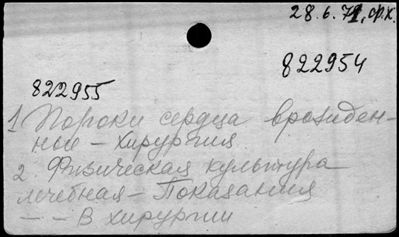 28.6.71, ф.к.
822954
822955
1 Пороки сердца врожден-
ные – хирургия
2 Физическая культура
лечебная – Показания
– – В хирургии